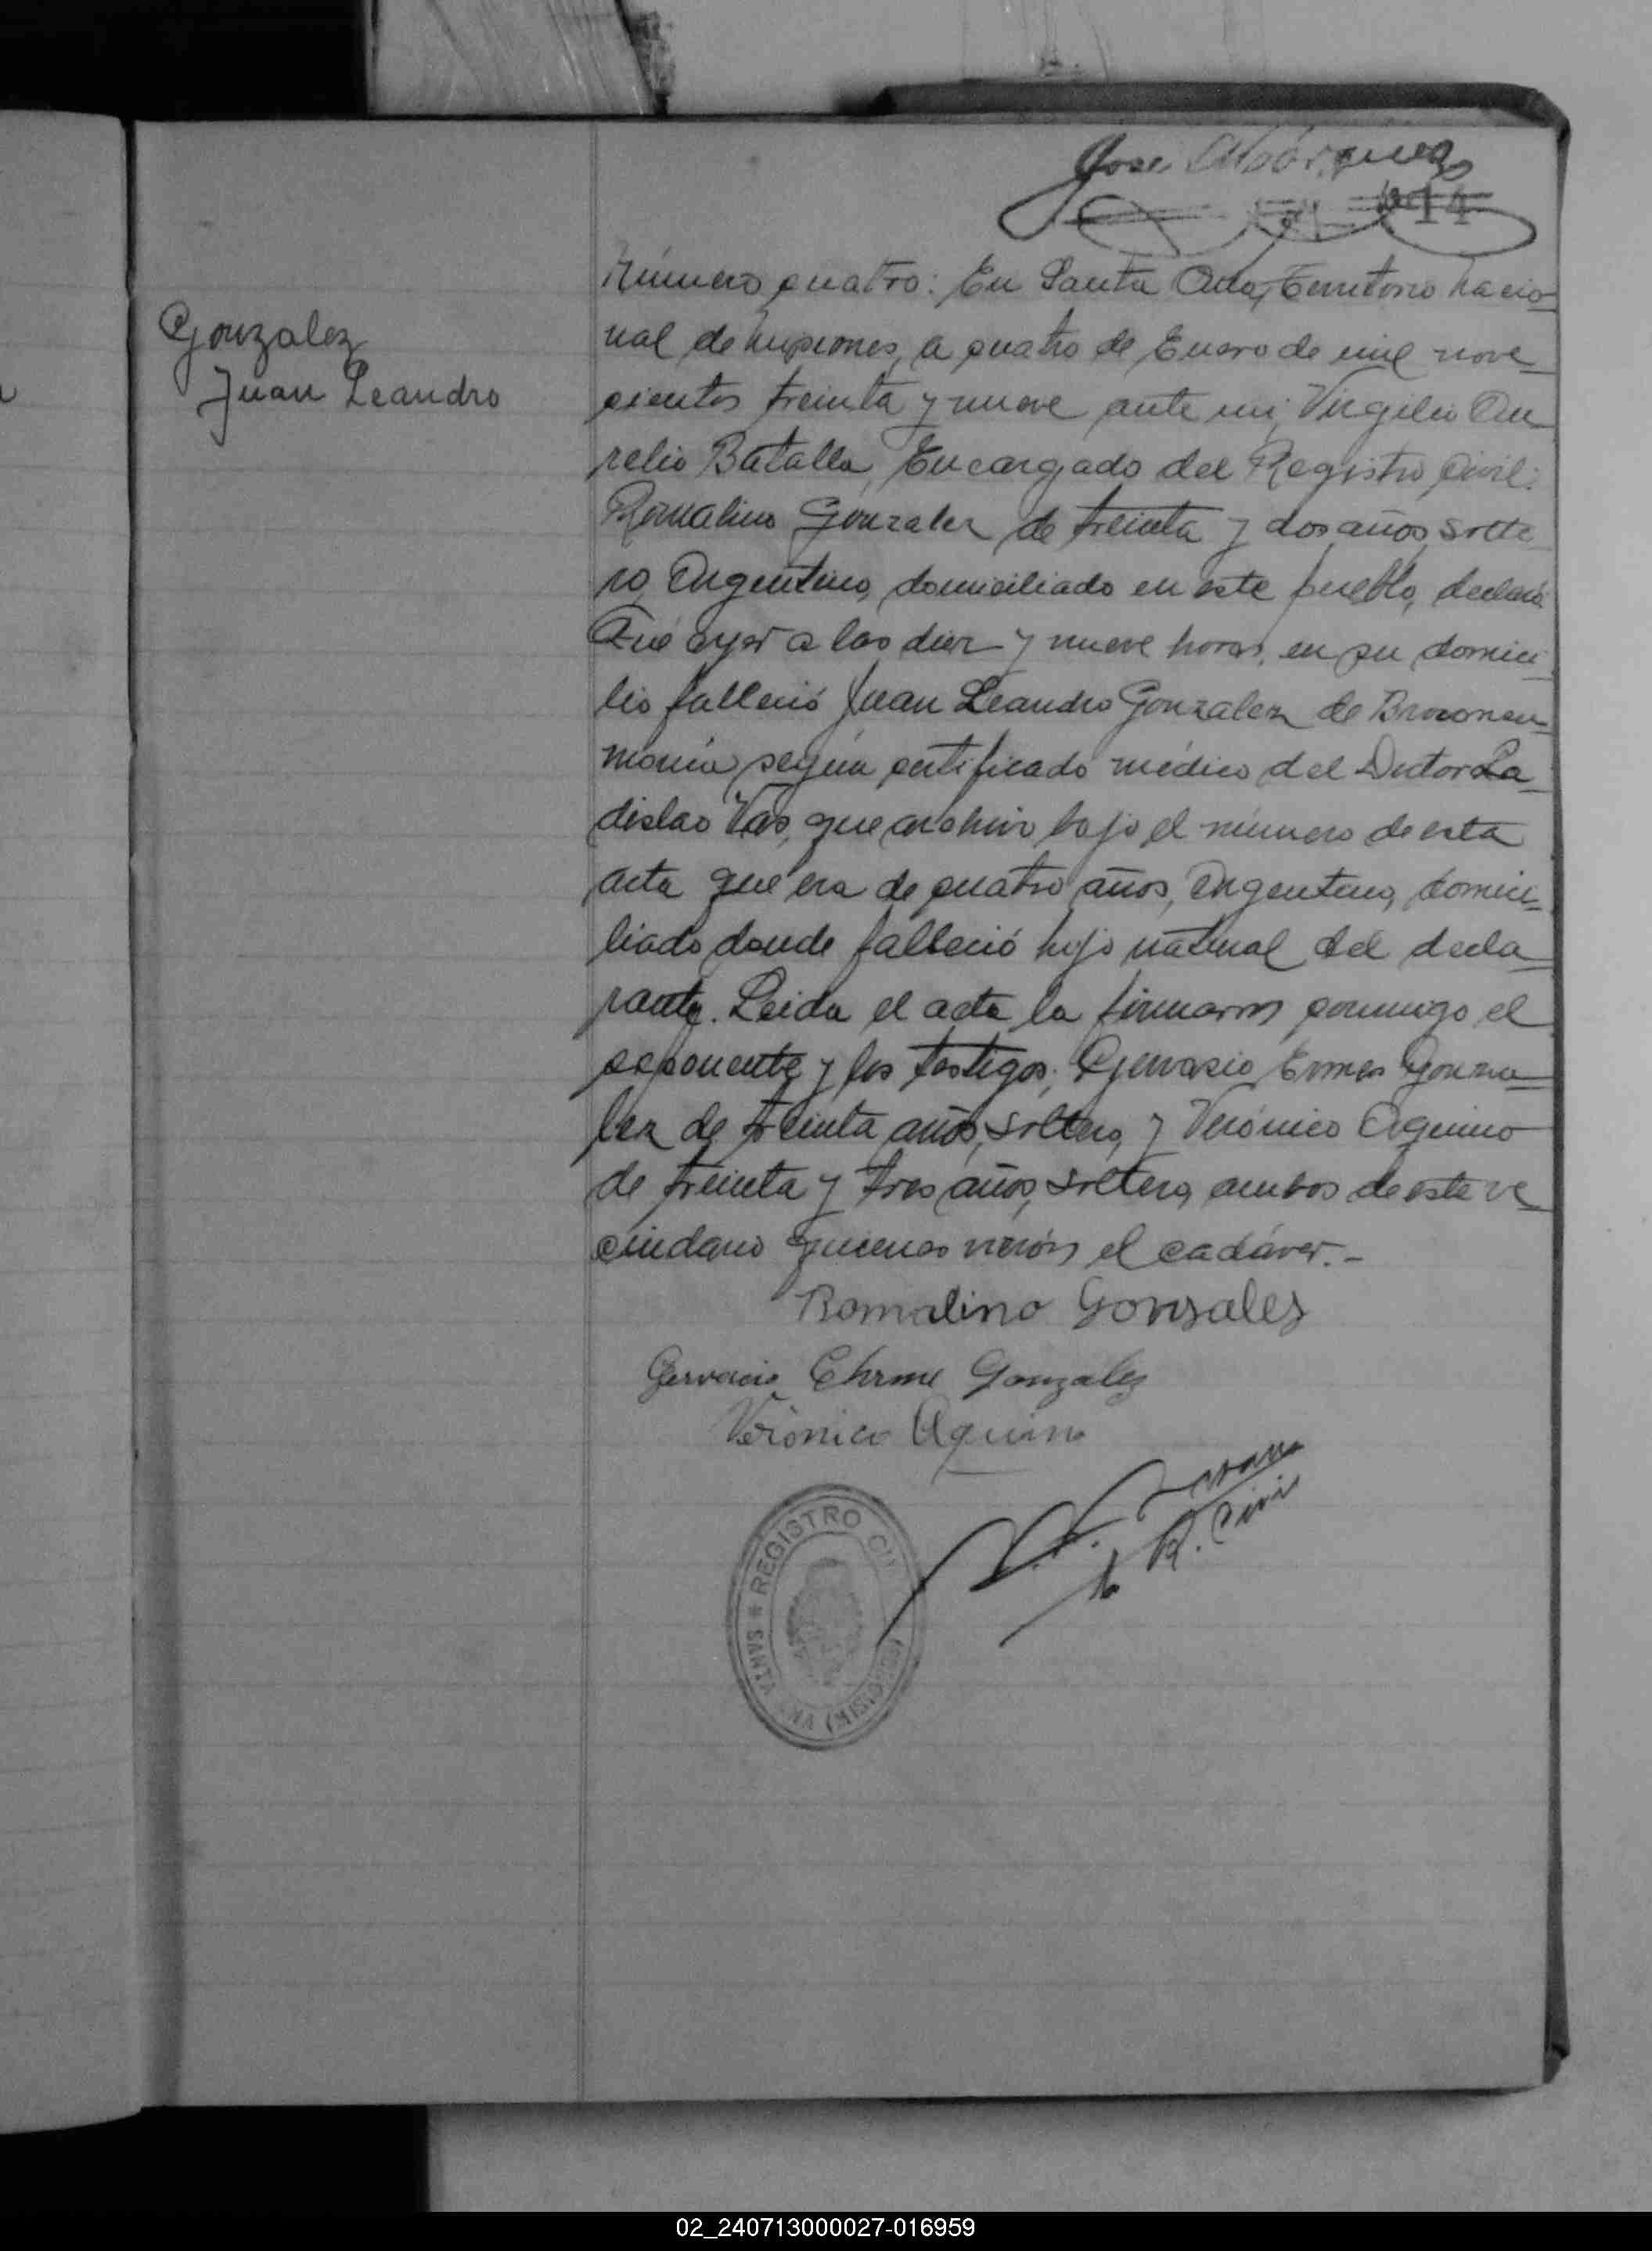 Jose
14
Gonzalez
Juan Leandro
Número cuatro: En Santa Ana, Territorio Nacio=
nal de Misiones, a cuatro de Enero de mil nove=
cientos treinta y nueve ante mi, Virgilio Au
relio Batalla, Encargado del Registro Civil:
Romalino Gonzalez de treinta y dos años, solte
ro, Argentino, domiciliado en este pueblo, declaró:
Que ayer a las diez y nueve horas, en su domici=
lio falleció Juan Leandro Gonzalez de Bronconeu=
monia según certificado médico del Doctor La=
dislao Vas, que archivo bajo el número de esta
acta que era de cuatro años, Argentino, domici=
liado donde falleció hijo natural del decla=
rante. Leida el acta la firmaron conmigo el
exponente y los testigos; Gervasio Ermes Gonza=
lez de treinta años, soltero, y Verónico Aquino
de treinta y tres años, soltero, ambos de este ve=
cindario quienes vieron el cadáver.-
Romalino Gonzalez
Gervacio Ehrme Gonzalez
Verónico Aquino
R. Civil
* REGISTRO CIVIL
SANTA ANA (MISIONES)
02_240713000027-016959